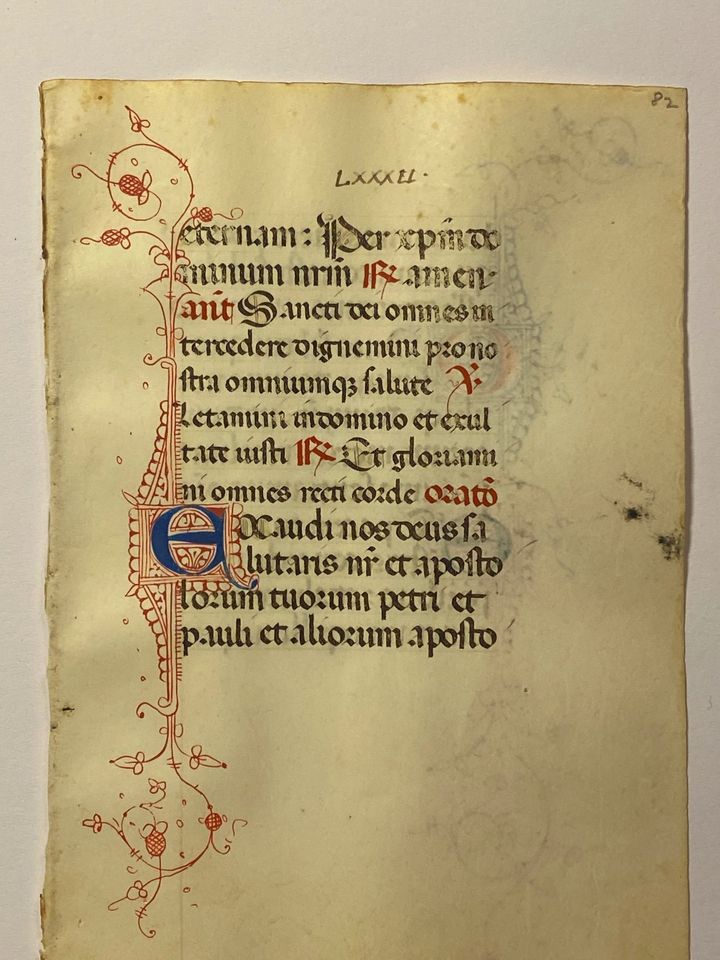 82
LXXXII.
eternam : Per xpm do
minum nrm ℟ amen
ant Sancti dei omnes in
tercedere dignemini pro no
stra omniumqꝫ salute ℣
Letamini in domino et exul
tate iusti ℟ Et gloriami
ni omnes recti corde oratō
EXaudi nos deus sa
lutaris nr̄ et aposto
lorum tuorum petri et
pauli et aliorum aposto